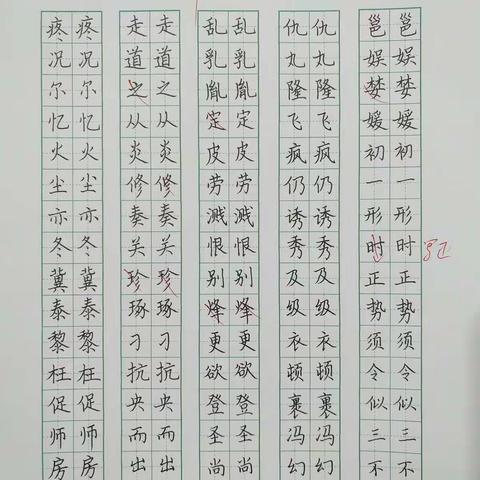 疼况尔忆火尘亦冬冀泰黎枉促师房
疼况尔忆火尘亦冬冀泰黎枉促师房
走道之从炎修奏关珍琢刁抗央而出
走道之从炎修奏关珍琢刁抗央而出
乱乳胤定皮劳溅恨别烽更欲登圣尚
乱乳胤定皮劳溅恨别烽更欲登圣尚
仇丸隆飞疯仍诱秀及级衣顿裹冯幻
仇丸隆飞疯仍诱秀及级衣顿裹冯幻
邕娱婪媛初一形时正势须令似三不
邕娱婪媛初一形时正势须令似三不